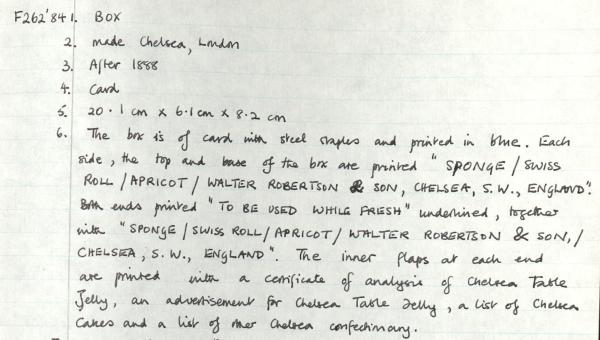 F262'84 1. BOX
2. made Chelsea, London
3. After 1888
4. Card
5. 20.1 cm x 6.1 cm x 8.2 cm
6. The box is of card with steel staples and printed in blue. Each
side, the top and base of the box are printed "SPONGE / SWISS
ROLL / APRICOT / WALTER ROBERTSON & SON, CHELSEA, S.W., ENGLAND".
Both ends printed "TO BE USED WHILE FRESH" underlined, together
with "SPONGE / SWISS ROLL / APRICOT / WALTER ROBERTSON & SON, /
CHELSEA, S.W., ENGLAND". The inner flaps at each end
are printed with a certificate of analysis of Chelsea Table
Jelly, an advertisement for Chelsea Table Jelly, a list of Chelsea
Cakes and a list of other Chelsea confectionary.